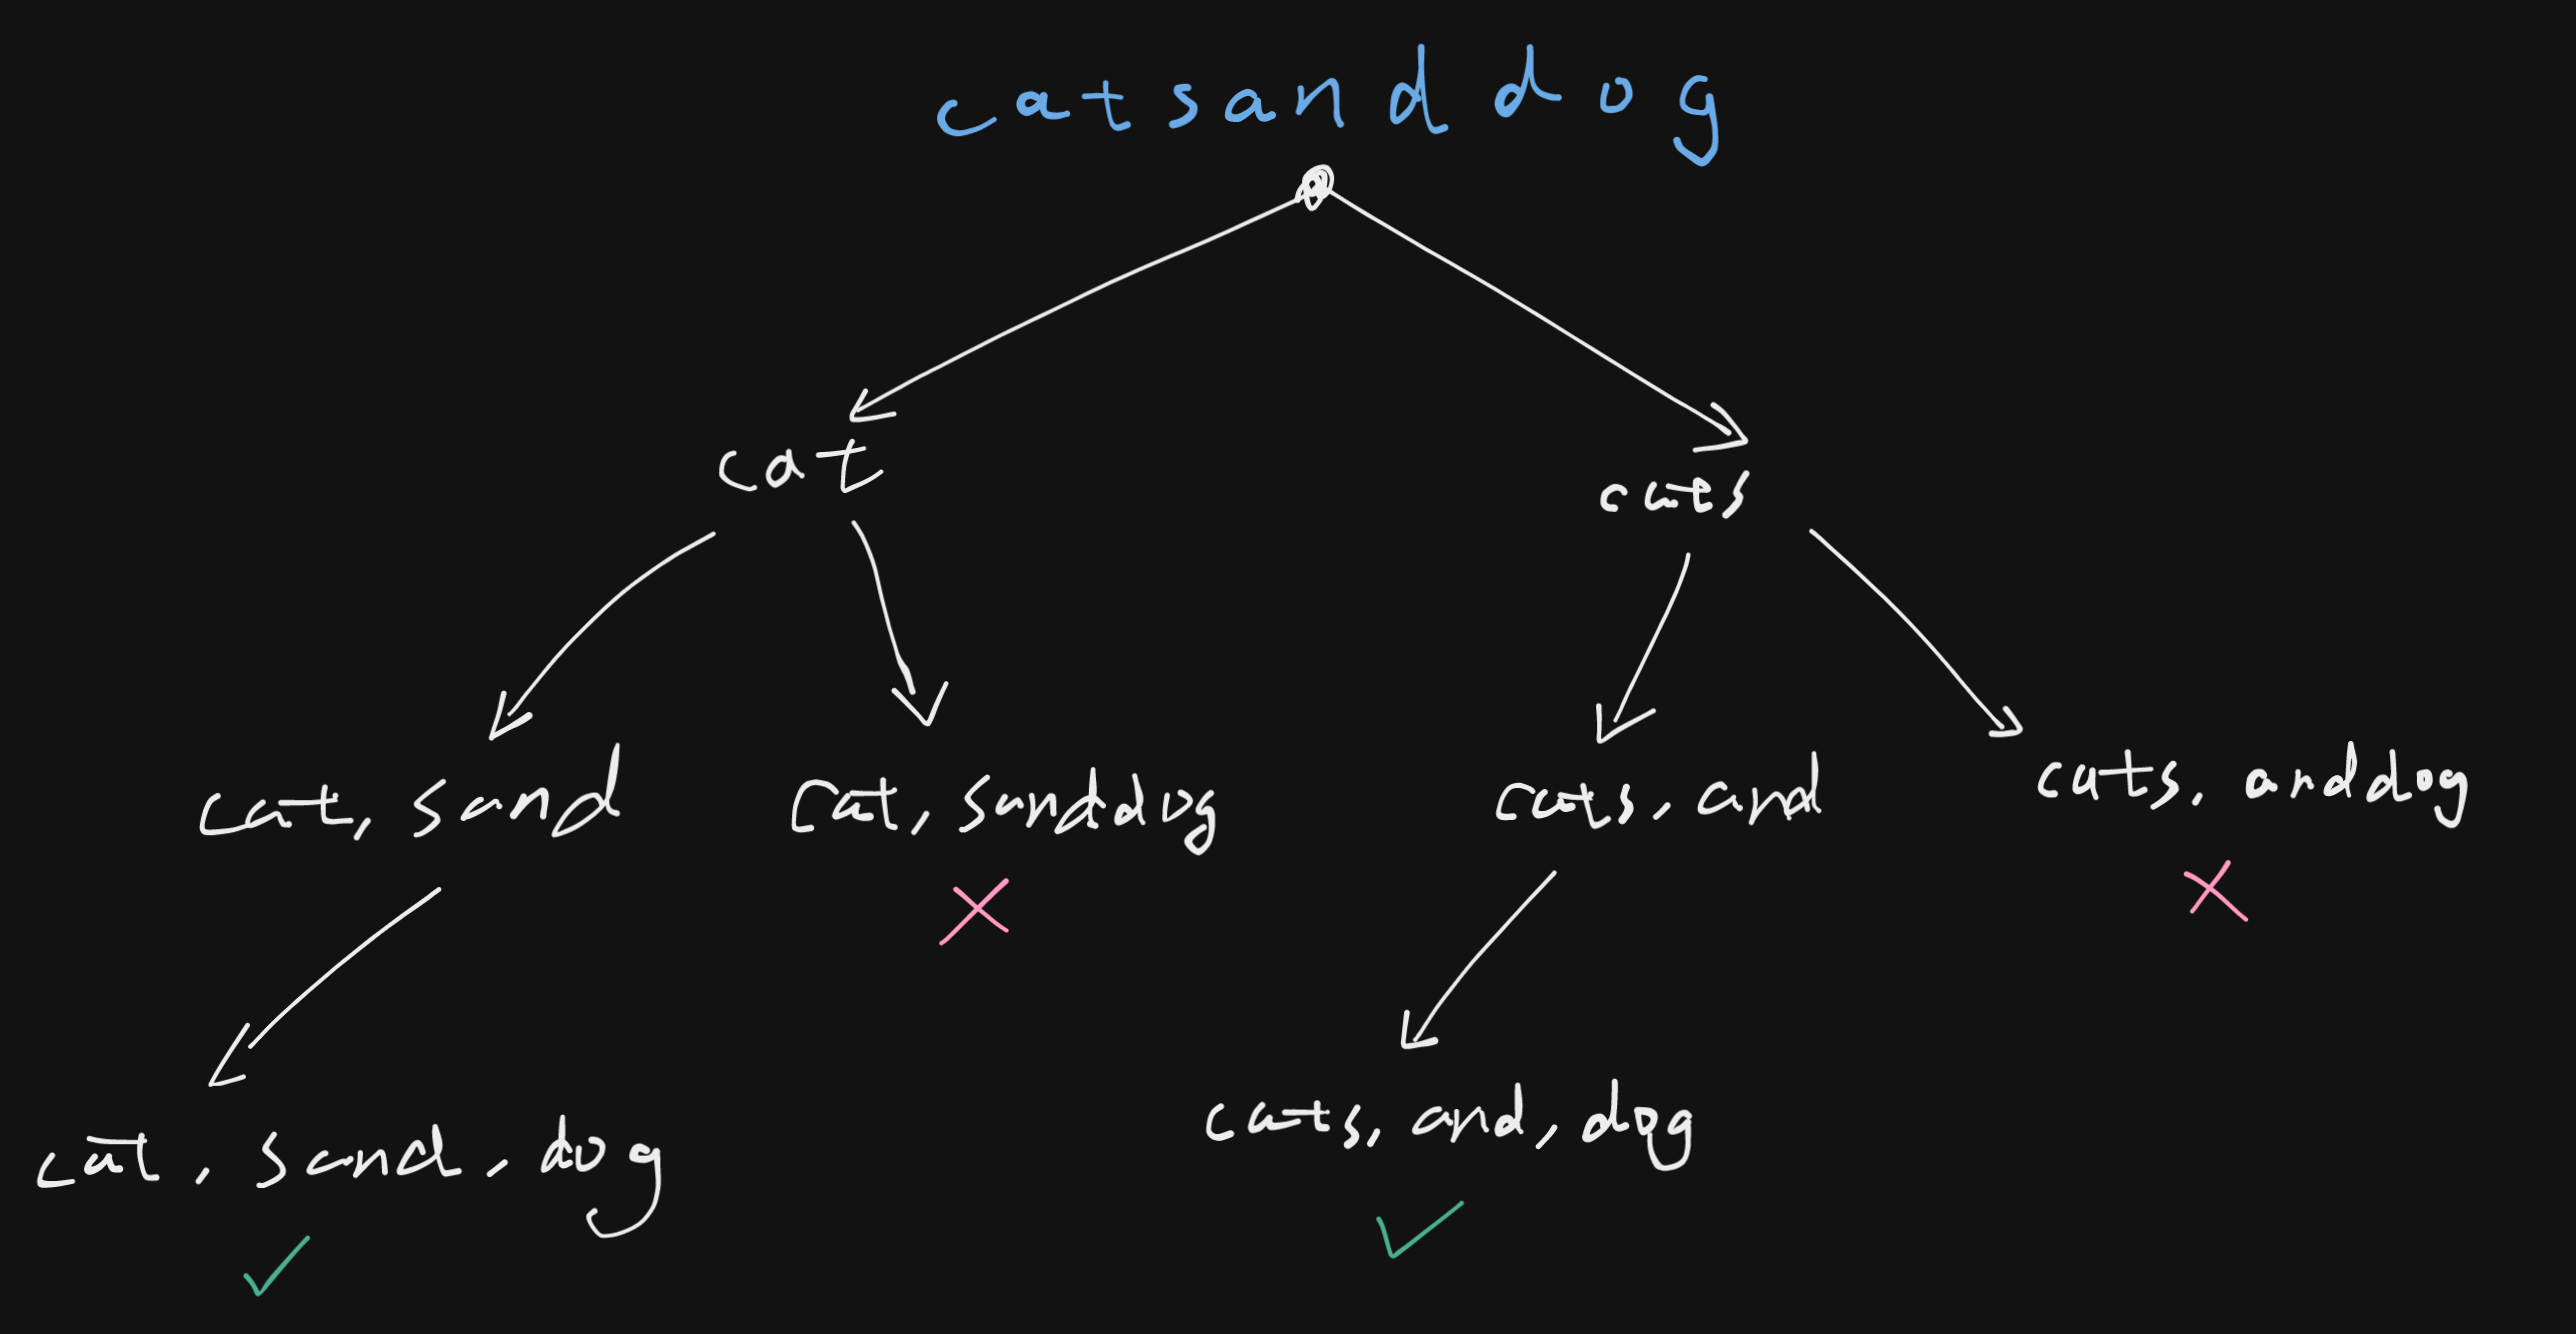 catsanddog
cat
cats
cat, sand
cat, sanddog
cats, and
cats, anddog
cat, sand, dog
cats, and, dog